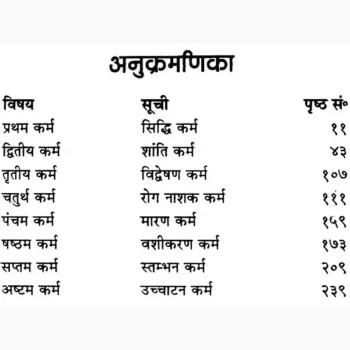 अनुक्रमणिका
विषय सूची पृष्ठ सं॰
प्रथम कर्म सिद्धि कर्म ११
द्वितीय कर्म शांति कर्म ४३
तृतीय कर्म विद्वेषण कर्म १०७
चतुर्थ कर्म रोग नाशक कर्म १११
पंचम कर्म मारण कर्म १५९
षष्ठम कर्म वशीकरण कर्म १७३
सप्तम कर्म स्तम्भन कर्म २०९
अष्टम कर्म उच्चाटन कर्म २३९